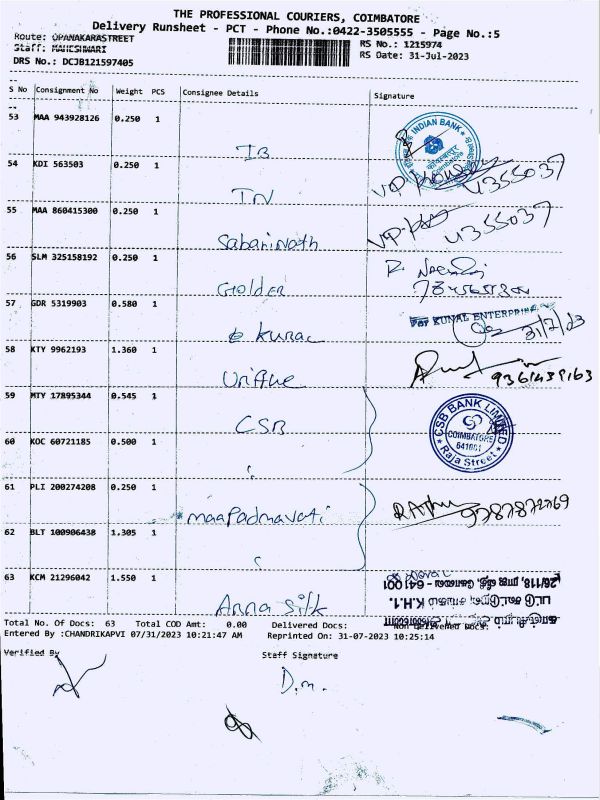 THE PROFESSIONAL COURIERS, COIMBATORE
Delivery Runsheet - PCT - Phone No.:0422-3505555 - Page No.:5
Route: OPANAKARASTREET
RS No.: 1215974
Staff: MAHESHWARI
RS Date: 31-Jul-2023
DRS No.: DCJB121597405
S No Consignment No Weight PCS Consignee Details Signature
53 MAA 943928126 0.250 1
IB
INDIAN BANK
54 KDI 563503 0.250 1
IN
4355037
55 MAA 860415300 0.250 1
Sabarinath
4355037
56 SLM 325158192 0.250 1
Golder
57 GDR 5319903 0.580 1
For KUNAL ENTERPRISE
31/7/23
58 KTY 9962193 1.360 1
59 MTY 17895344 0.545 1
CSB
CSB BANK LIMITED
COIMBATORE
641001
Raja Street
60 KOC 60721185 0.500 1
61 PLI 200274208 0.250 1
maaPadmavati
62 BLT 100906438 1.305 1
63 KCM 21296042 1.550 1
Anna Silk
Total No. Of Docs: 63 Total COD Amt: 0.00 Delivered Docs: Non Delivered Docs:
Entered By :CHANDRIKAPVI 07/31/2023 10:21:47 AM Reprinted On: 31-07-2023 10:25:14
Verified By
Staff Signature
D.m.